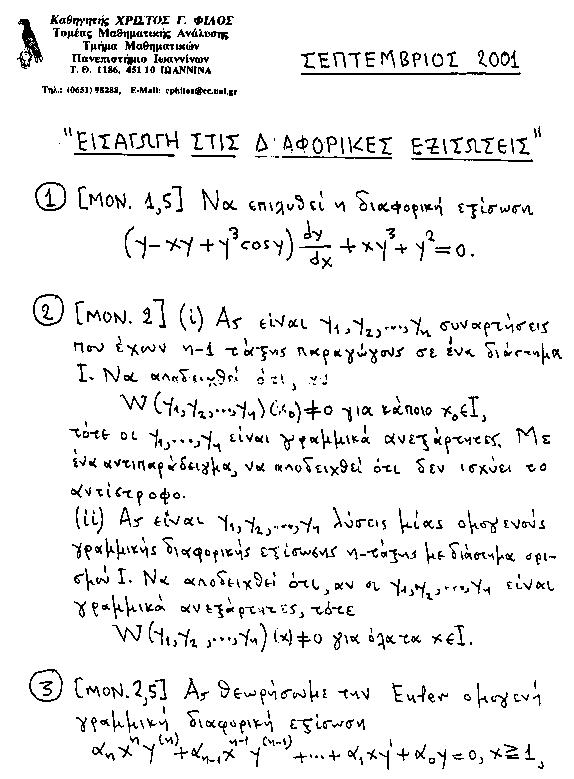 Καθηγητής ΧΡΗΣΤΟΣ Γ. ΦΙΛΟΣ
Τομέας Μαθηματικής Ανάλυσης
Τμήμα Μαθηματικών
Πανεπιστήμιο Ιωαννίνων
Τ. Θ. 1186, 451 10 ΙΩΑΝΝΙΝΑ
Τηλ.: (0651) 98288, E-Mail: cphilos@cc.uoi.gr
ΣΕΠΤΕΜΒΡΙΟΣ 2001
"ΕΙΣΑΓΩΓΗ ΣΤΙΣ ΔΙΑΦΟΡΙΚΕΣ ΕΞΙΣΩΣΕΙΣ"
① [ΜΟΝ. 1,5] Να επιλυθεί η διαφορική εξίσωση
(y-xy+y³cosy) dy/dx + xy³ + y² = 0.
② [ΜΟΝ. 2] (i) Ας είναι y₁, y₂, ..., yₙ συναρτήσεις
που έχουν n-1 τάξης παραγώγους σε ένα διάστημα
I. Να αποδειχθεί ότι, αν
W(y₁, y₂, ..., yₙ)(x₀) ≠ 0 για κάποιο x₀∈I,
τότε οι y₁, ..., yₙ είναι γραμμικά ανεξάρτητες. Με
ένα αντιπαράδειγμα, να αποδειχθεί ότι δεν ισχύει το
αντίστροφο.
(ii) Ας είναι y₁, y₂, ..., yₙ λύσεις μίας ομογενούς
γραμμικής διαφορικής εξίσωσης n-τάξης με διάστημα ορι-
σμού I. Να αποδειχθεί ότι, αν οι y₁, y₂, ..., yₙ είναι
γραμμικά ανεξάρτητες, τότε
W(y₁, y₂, ..., yₙ)(x) ≠ 0 για όλα τα x∈I.
③ [ΜΟΝ. 2,5] Ας θεωρήσωμε την Euler ομογενή
γραμμική διαφορική εξίσωση
αₙxⁿy⁽ⁿ⁾ + αₙ₋₁xⁿ⁻¹y⁽ⁿ⁻¹⁾ + ... + α₁xy' + α₀y = 0, x ≥ 1,